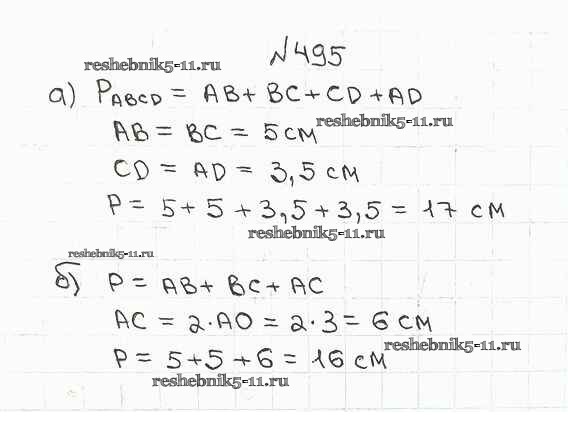 №495
reshebnik5-11.ru
а) P ABCD = AB + BC + CD + AD
reshebnik5-11.ru
AB = BC = 5 см
CD = AD = 3,5 см
P = 5 + 5 + 3,5 + 3,5 = 17 см
reshebnik5-11.ru
reshebnik5-11.ru
б) P = AB + BC + AC
AC = 2·AO = 2·3 = 6 см
reshebnik5-11.ru
P = 5 + 5 + 6 = 16 см
reshebnik5-11.ru